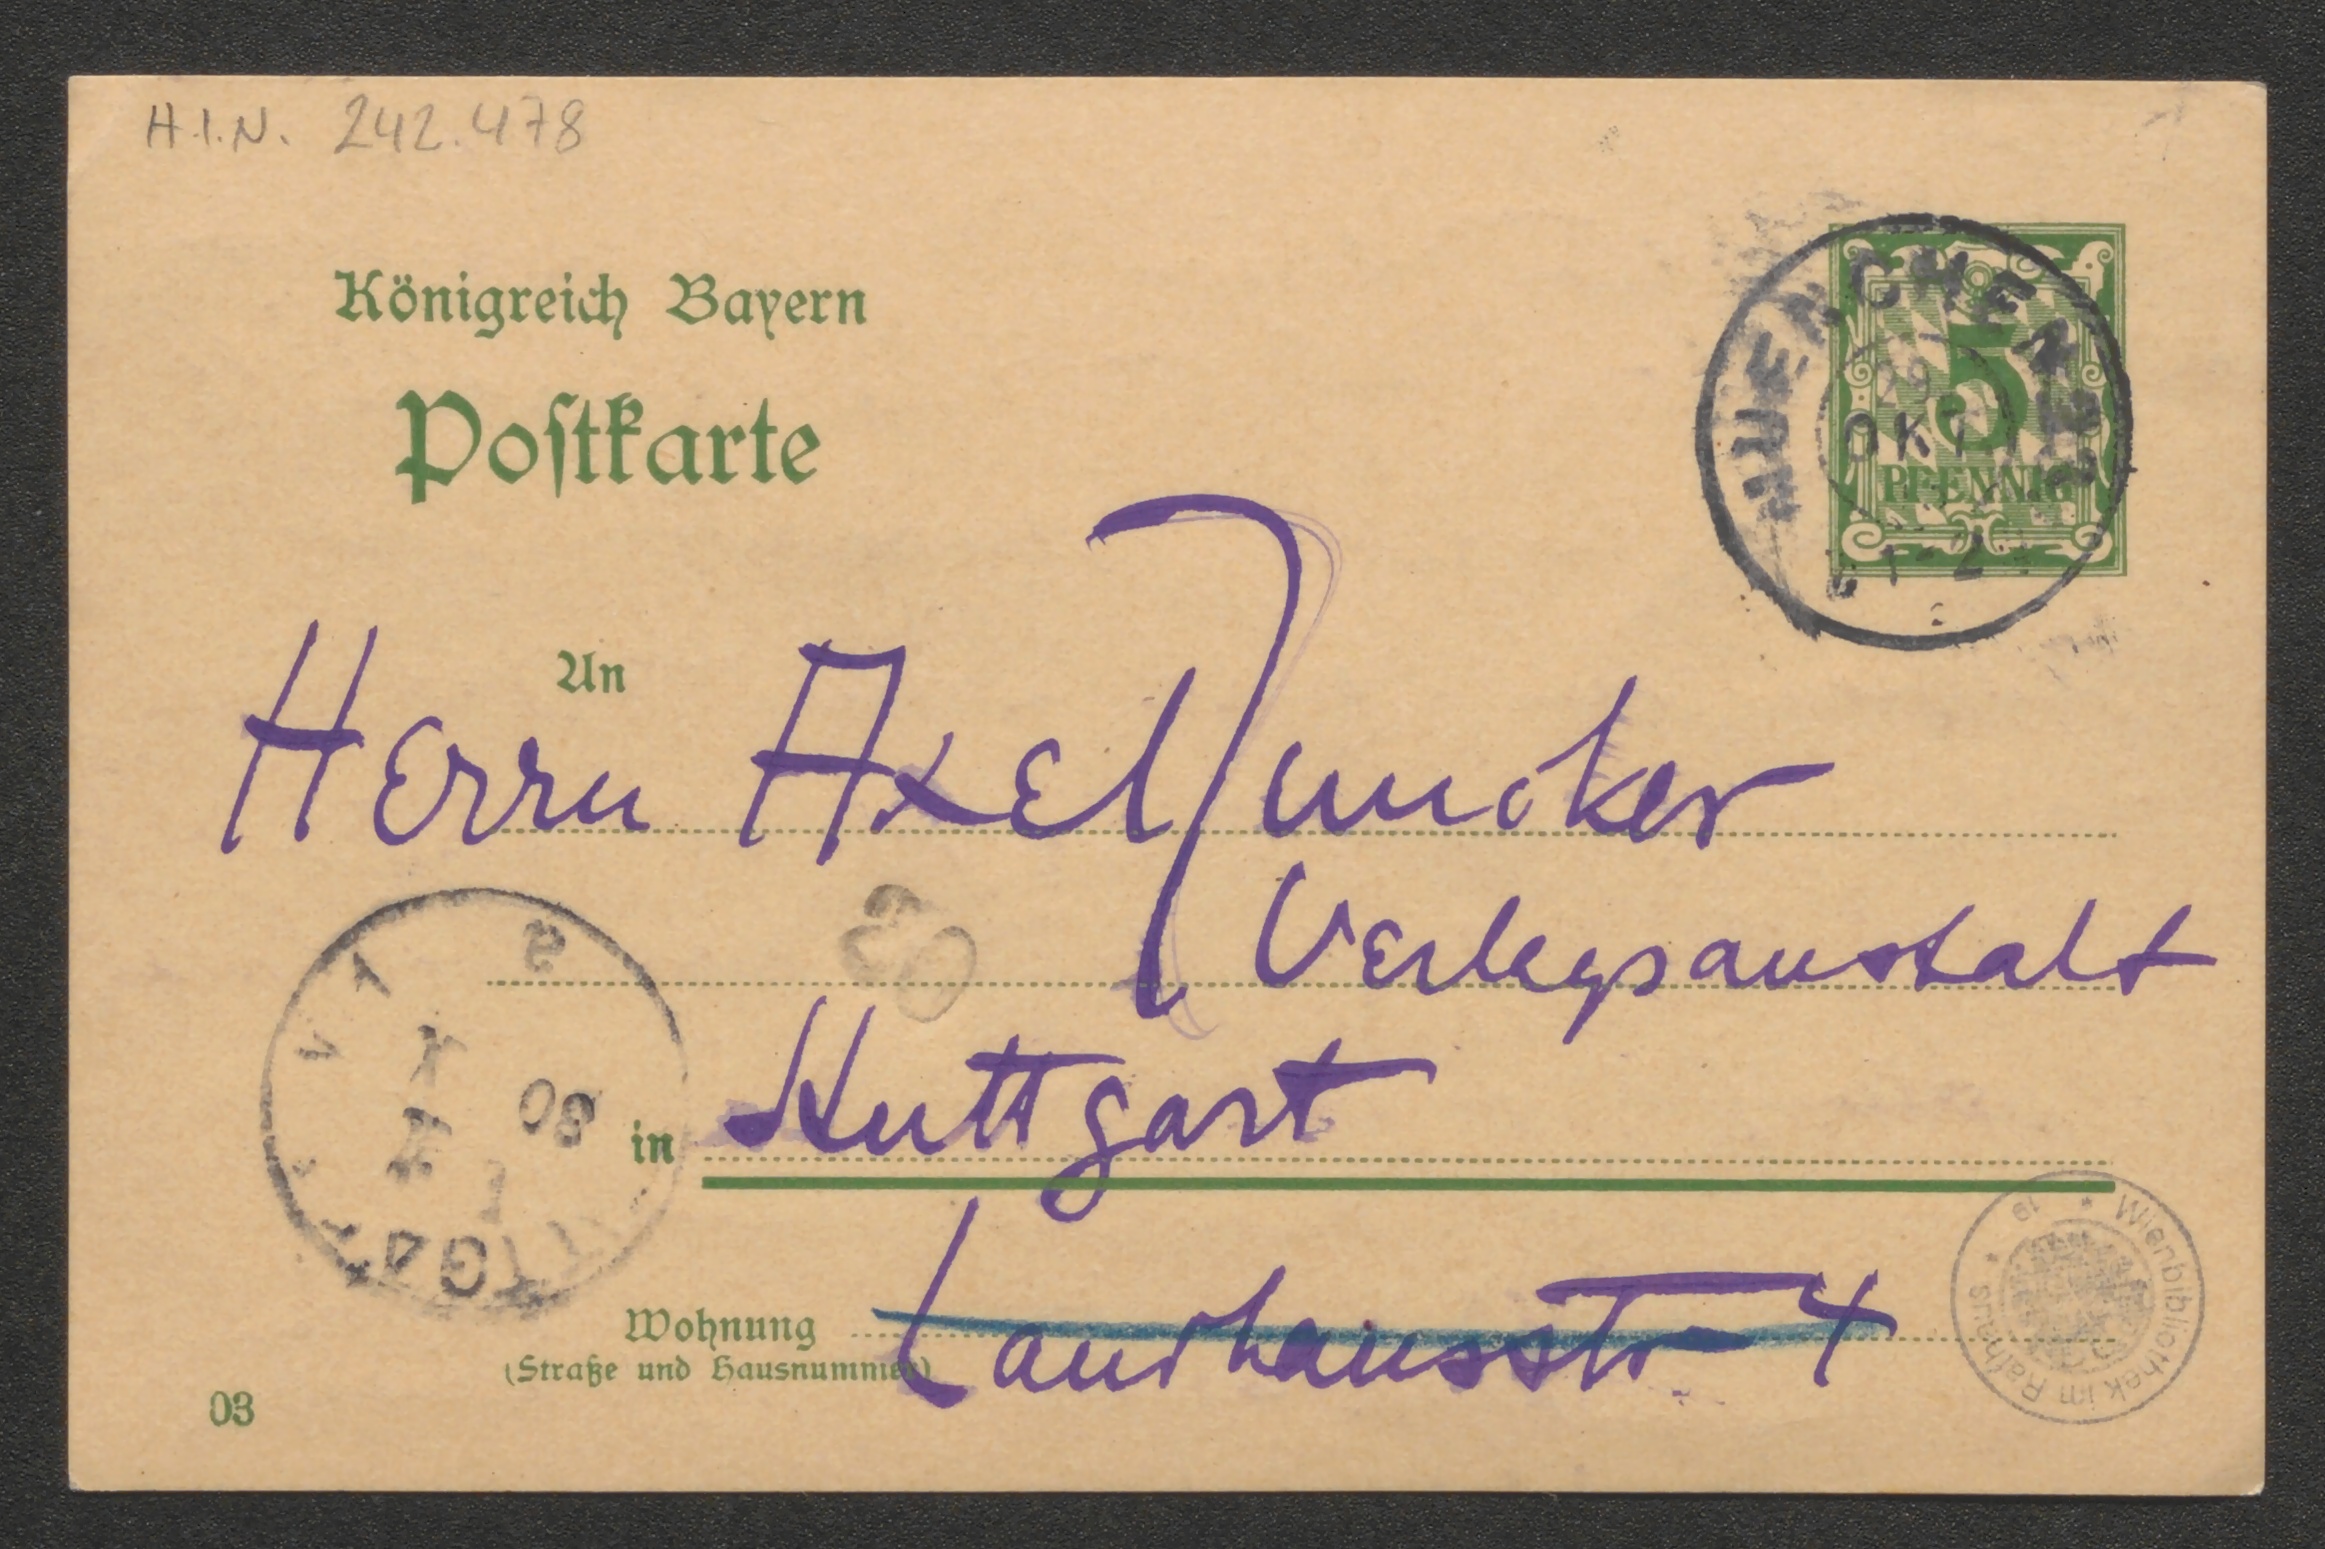 H.I.N. 242.478
Königreich Bayern
Postkarte
MUENCHEN
29
OKT
5
PFENNIG
An
Herrn Axel Juncker
Verlagsanstalt
in Stuttgart
Landhausstr 4
Wohnung
(Straße und Hausnummer)
03
30
Wienbibliothek im Rathaus